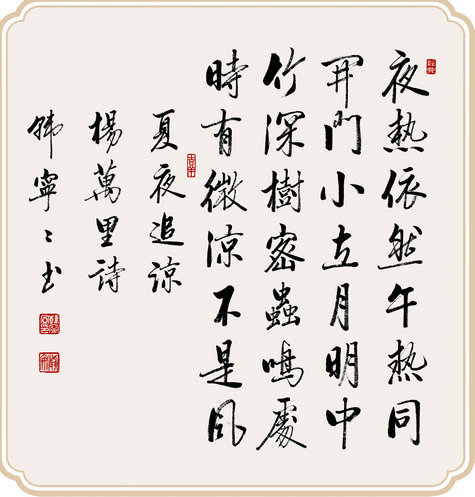 夜熱依然午熱同
開門小立月明中
竹深樹密蟲鳴處
時有微涼不是風
夏夜追涼
楊萬里詩
韩寧寧书